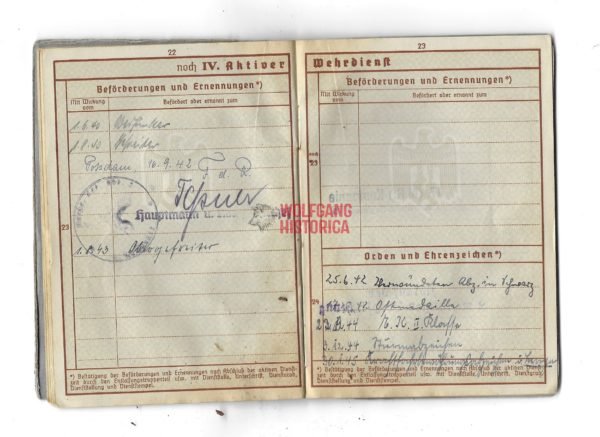 22
noch IV. Aktiver
Beförderungen und Ernennungen*)
Mit Wirkung vom
Befördert oder ernannt zum
1.6.40
1.8.40
Potsdam, 16.9.42 F. d. R.
Hauptmann u.
23
43 Obergefreiter
*) Bestätigung der Beförderungen und Ernennungen nach Abschluß der aktiven Dienst-
zeit durch den Entlassungstruppenteil usw. mit Dienststelle, Unterschrift, Dienstgrad,
Dienststellung und Dienststempel.
23
Wehrdienst
Beförderungen und Ernennungen*)
Mit Wirkung vom
Befördert oder ernannt zum
WOLFGANG
HISTORICA
Orden und Ehrenzeichen*)
25.6.42 Verwundeten Abz. in Schwarz
24
42 Ostmedaille
44 K. K. II. Klasse
44 Sturmabzeichen
45
*) Bestätigung der Beförderungen und Ernennungen nach Abschluß der aktiven Dienst-
zeit durch den Entlassungstruppenteil usw. mit Dienststelle, Unterschrift, Dienstgrad,
Dienststellung und Dienststempel.